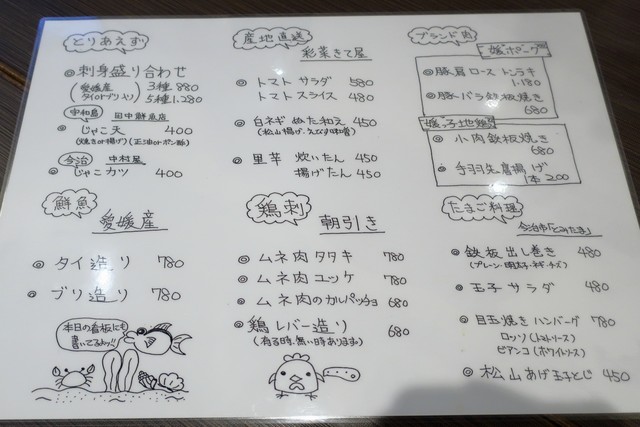 とりあえず
◎刺身盛り合わせ
(愛媛産 タイorブリ入り) 3種 880
5種 1.280
宇和島 田中鮮魚店
◎じゃこ天 400
(焼きor揚げ)(正油orポン酢)
今治 中村屋
◎じゃこカツ 400
鮮魚
愛媛産
◎タイ造り 780
◎ブリ造り 780
本日の看板にも
書いてるよッ!!
産地直送
彩菜きて屋
◎トマトサラダ 580
トマトスライス 480
◎白ネギぬた和え 450
(松山揚げ・えひす味噌)
◎里芋 炊いたん 450
揚げたん 450
鶏刺
朝引き
◎ムネ肉タタキ 780
◎ムネ肉ユッケ 780
◎ムネ肉のカルパッチョ 680
◎鶏レバー造り 680
(有る時、無い時あります)
ブランド肉
媛ポーク
◎豚肩ローストンテキ
1.180
◎豚バラ鉄板焼き
680
媛っ子地鶏
◎小肉鉄板焼き
680
◎手羽先唐揚げ
1本 200
たまご料理
今治市「とみたま」
◎鉄板出し巻き 480
(プレーン・明太子・ネギ・チーズ)
◎玉子サラダ 480
◎目玉焼きハンバーグ 780
ロッソ(トマトソース)
ビアンコ(ホワイトソース)
◎松山あげ玉子とじ 450